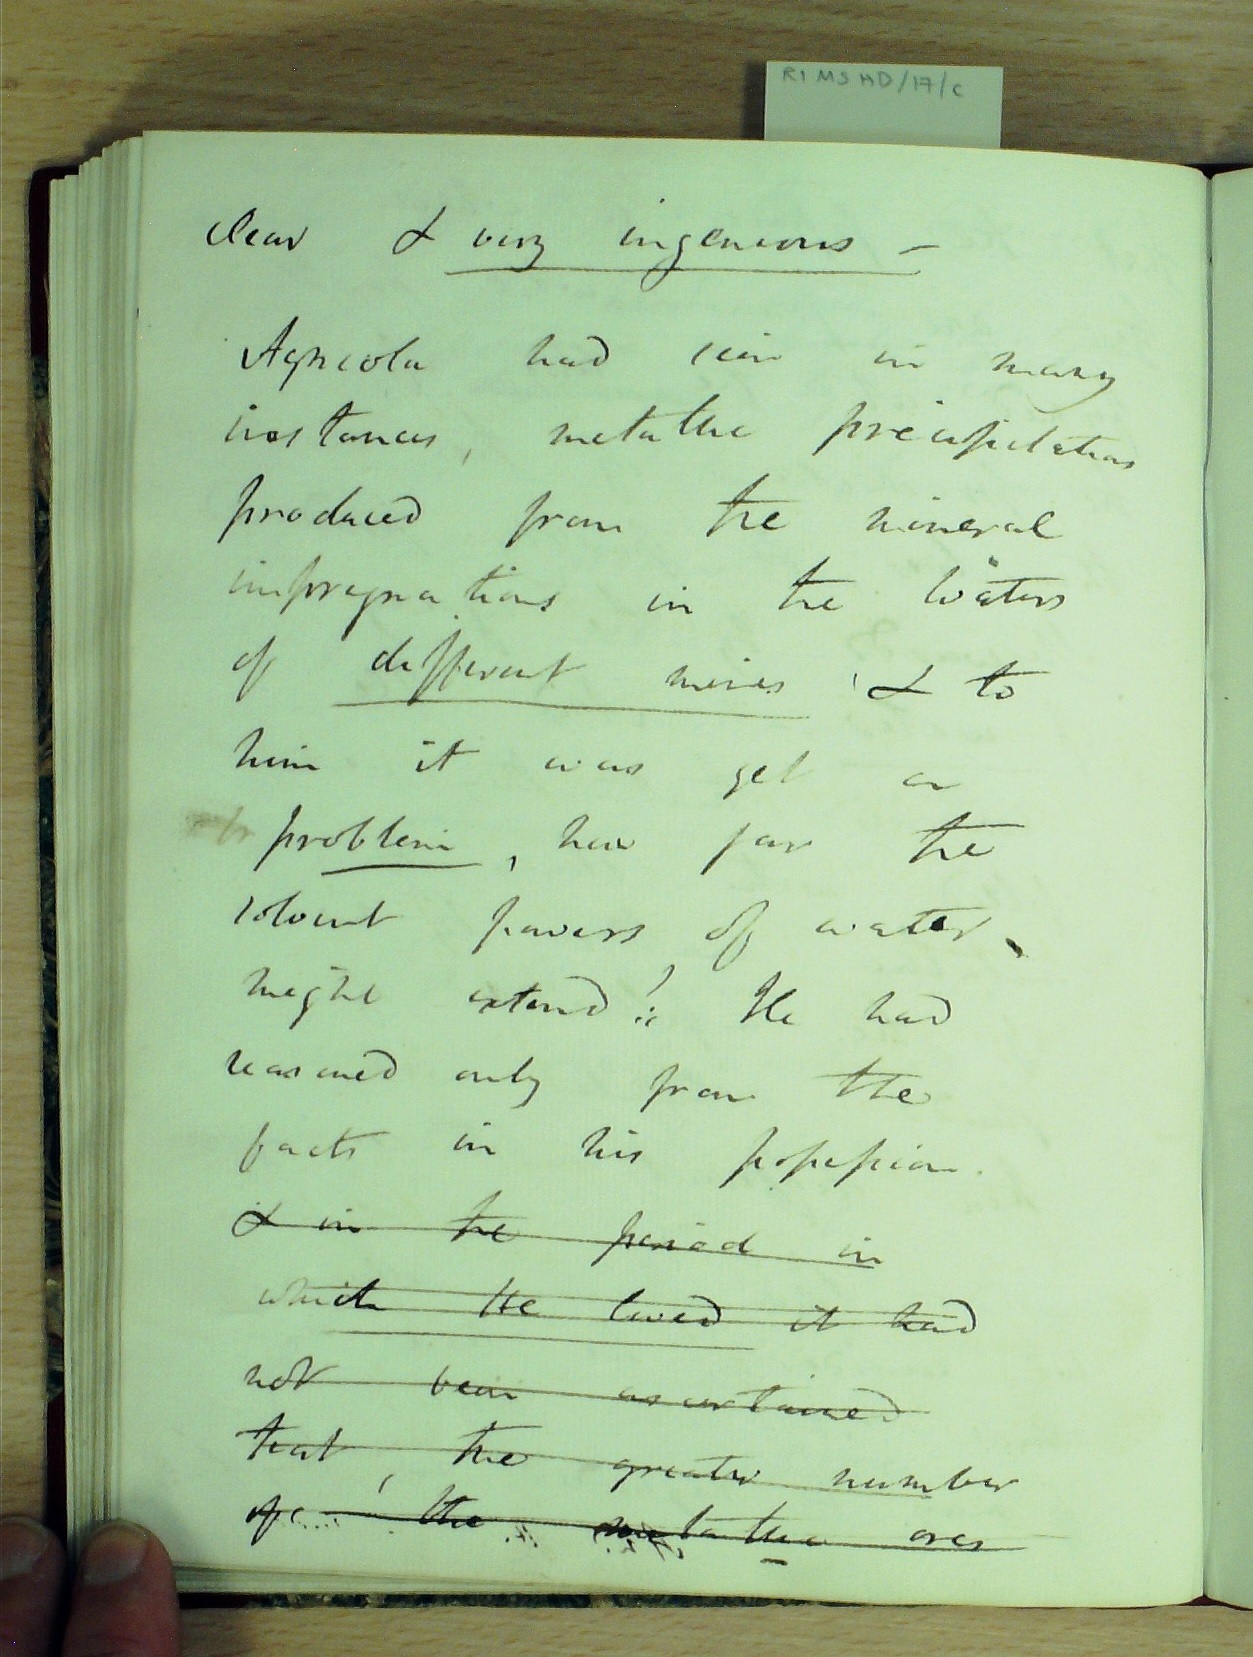 RI MS HD/17/C
clear & very ingenious –
Agricola had seen in many
instances, metallic precipitations
produced from the mineral
impregnations in the waters
of different mines & to
him it was yet a
problem, how far the
solvent powers of water
might extend! He had
reasoned only from the
facts in his possession.
& in the period in
which He lived it had
not been ascertained
that, the greater number
of the metallic ores